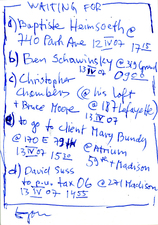 WAITING FOR
a) Baptiste Heinsoeth @
740 Park Ave 12 IV 07 17 15
b) Ben Schawinsky @ 319 Grand
13 IV 07 09 50
c) Christopher
Chambers @ his loft
+ Bruce Moore @ 187 Lafayette)
13 IV 07
d) to go to client Mary Bundy
@ 170 E 79TH @ Atrium
13 IV 07 15 20 59TH + Madison
d) David Suss
to p.u. tax 06 @ 271 Madison
13 IV 07 14 55